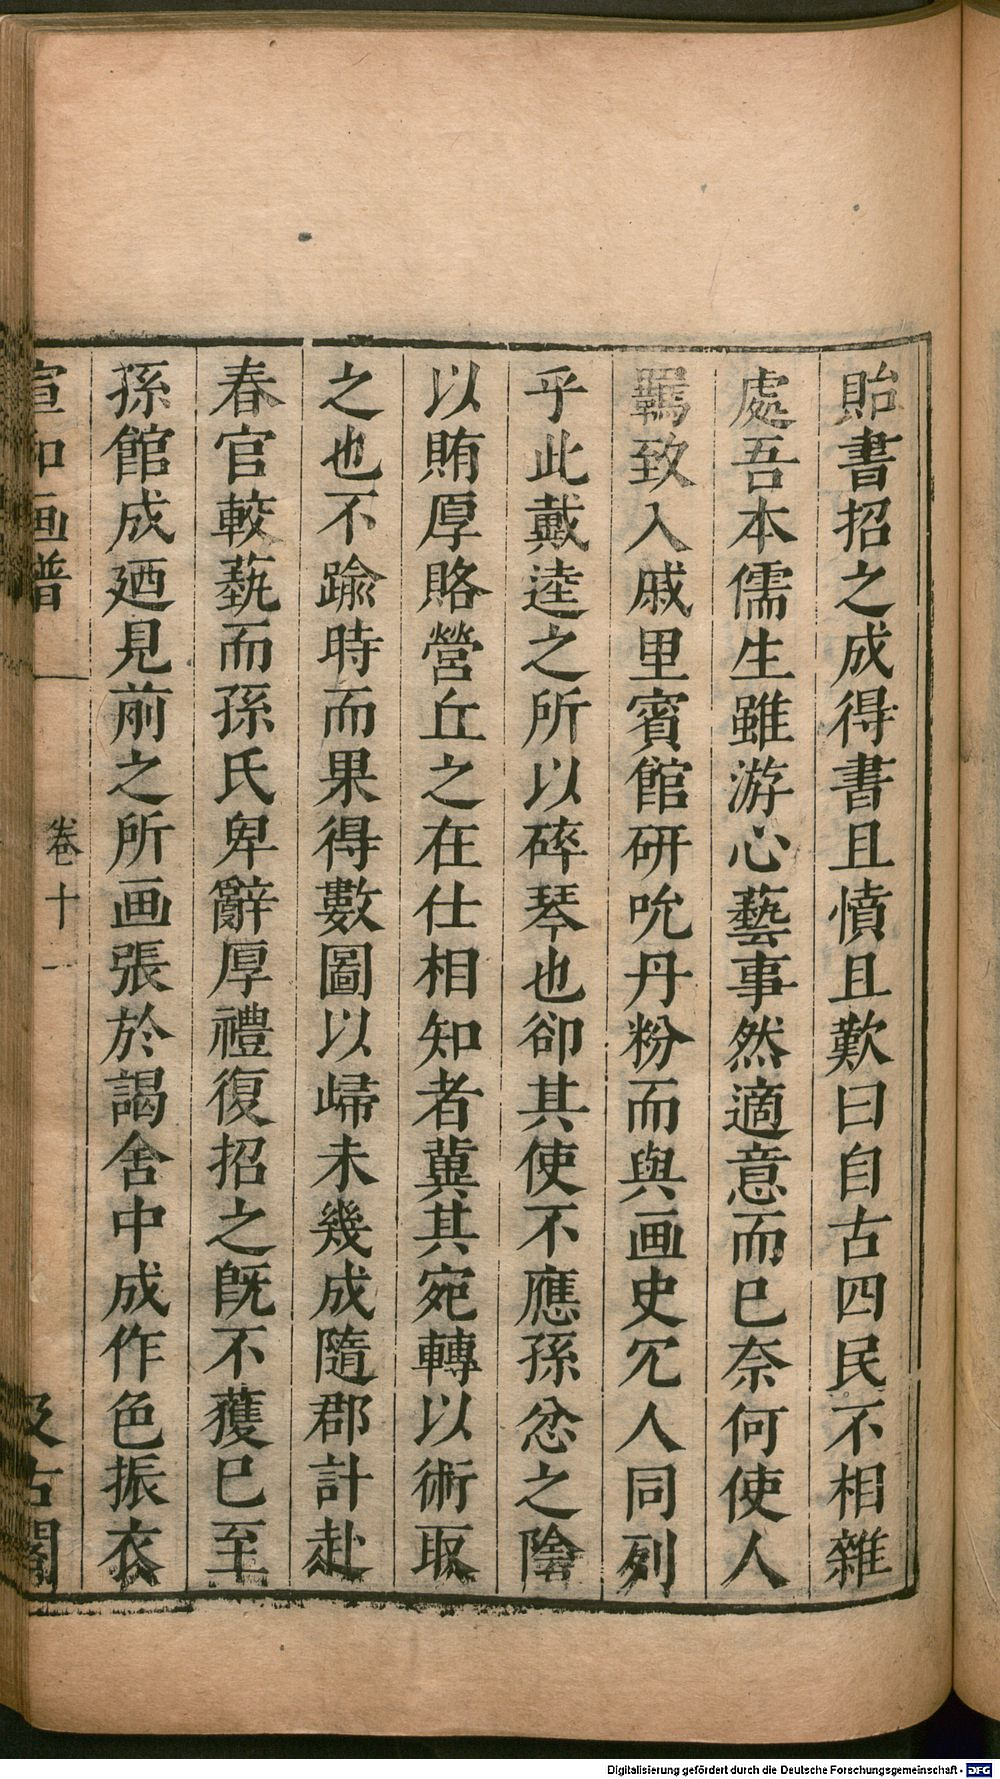 貽書招之成得書且憤且歎曰自古四民不相雜
處吾本儒生雖游心藝事然適意而已奈何使人
羈致入戚里賓館研吮丹粉而與画史冗人同列
乎此戴逵之所以碎琴也卻其使不應孫忿之陰
以賄厚賂營丘之在仕相知者冀其宛轉以術取
之也不踰時而果得數圖以歸未幾成隨郡計赴
春官較藝而孫氏卑辭厚禮復招之旣不獲已至
孫館成廼見前之所画張於謁舍中成作色振衣
宣和画譜 卷十一 汲古閣
Digitalisierung gefördert durch die Deutsche Forschungsgemeinschaft - DFG